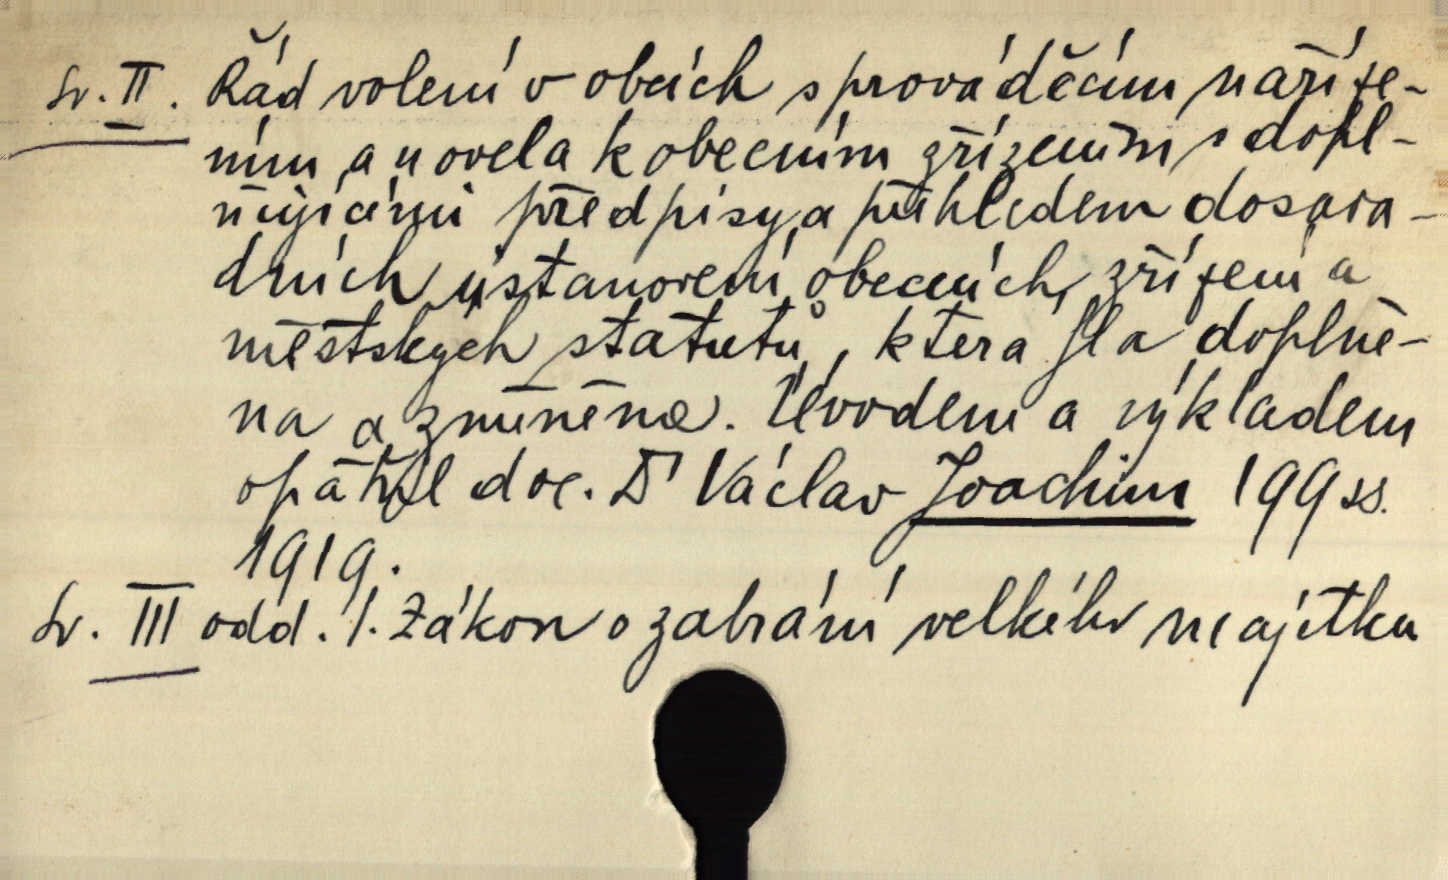 Sv. II. Řád volení v obcích s prováděcím naříze-
ním a novela k obecním zřízením s dopl-
ňujícími předpisy a přehledem dosava-
dních ustanovení obecních zřízení a
městských statutů, která jla doplně-
na a změněna. Úvodem a výkladem
opatřil doc. Dr Václav Joachim 199 ss.
1919.
Sv. III odd. 1. Zákon o zabrání velkého majetku